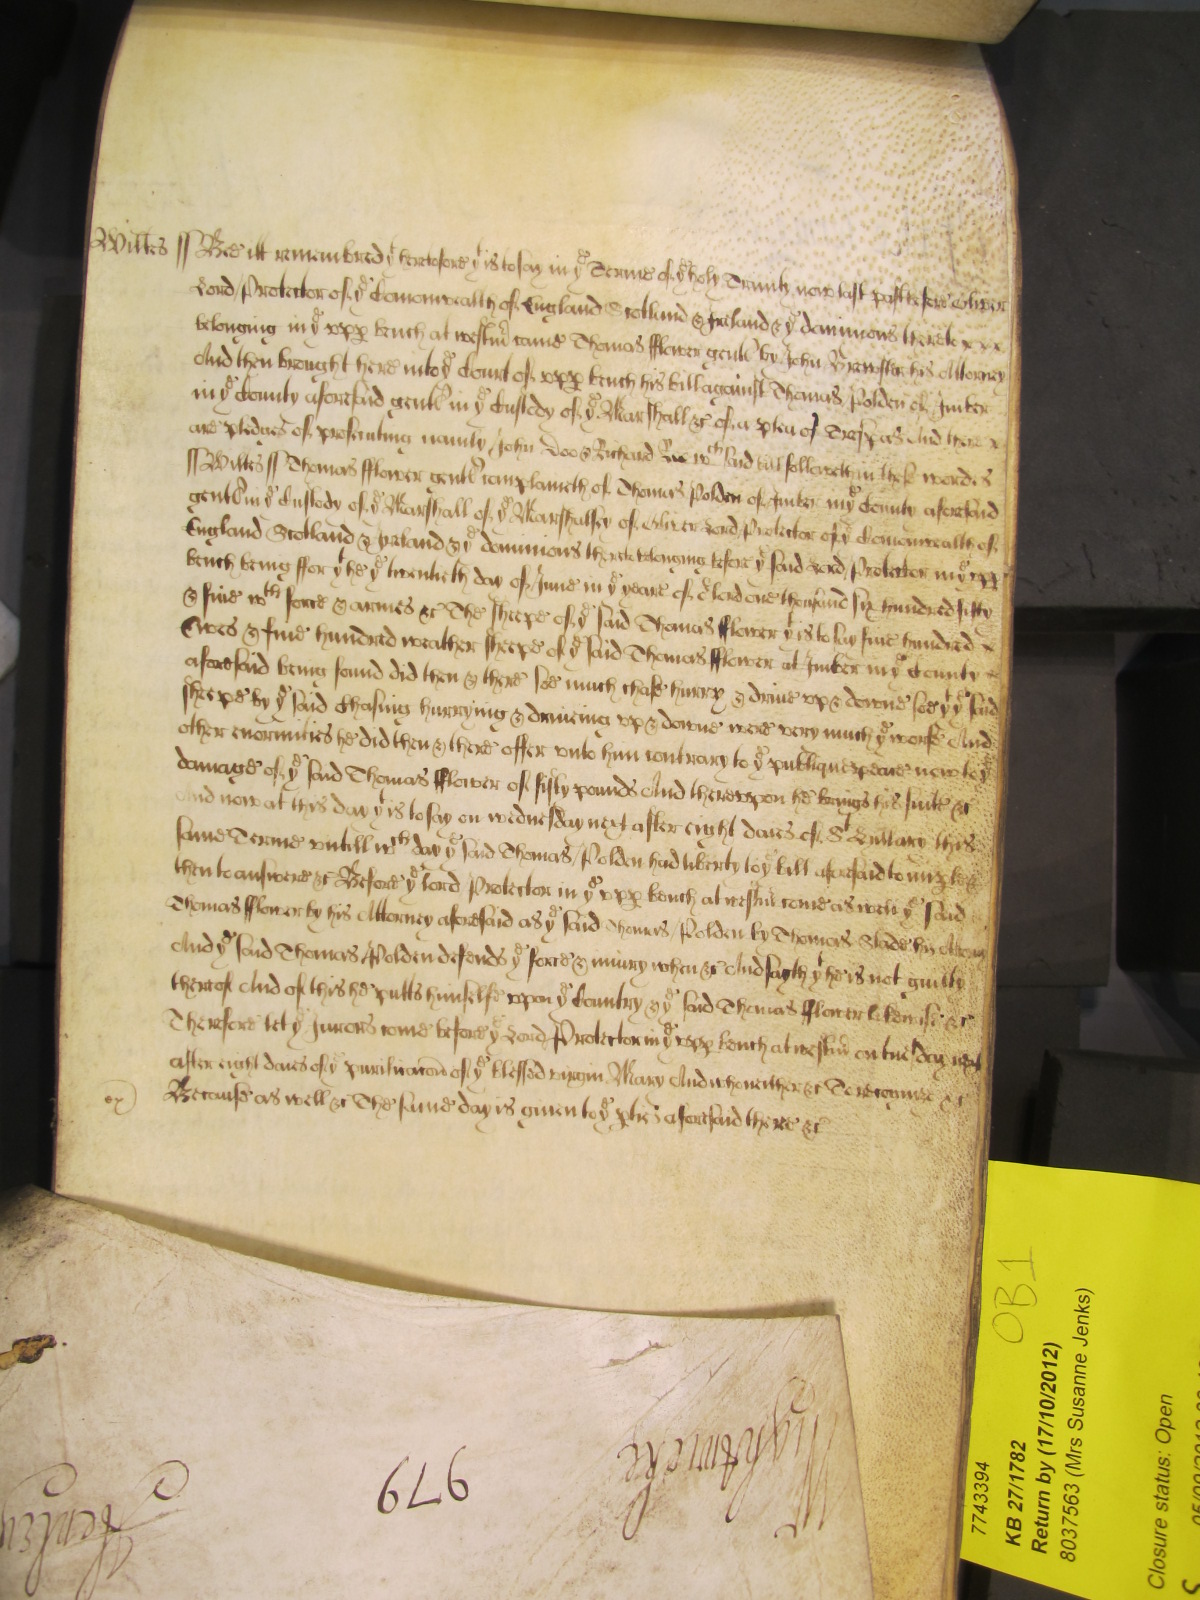 Wiltes ss Bee itt remembred yt heretofore yt is to say in ye Terme of ye holy Trinity now last past before Oliver
Lord Protector of ye Comonwealth of England Scotland & Ireland & ye dominions thereto
belonging in ye upp bench at westmr came Thomas fflower gentl by John Brewster his Attorney
And then brought here into ye Court of upp bench his bill against Thomas Polden of Imber
in ye County aforesaid gentl in ye Custody of ye Marshall &c of a plea of Trespas And there
are pledges of prosecuting namely John Doo & Richard Roe wch said bill followeth in these wordes
ss Wiltes ss Thomas fflower gentl complaineth of Thomas Polden of Imber in ye County aforesaid
gentl in ye Custody of ye Marshall of ye Marshalsey of Oliver Lord Protector of ye Comonwealth of
England Scotland & Ireland & ye dominions thereto belonging before ye said Lord Protector in ye upp
bench being ffor yt he ye twentieth day of June in ye yeare of or lord one thousand six hundred fifty
& five wth force & armes &c The sheepe of ye said Thomas fflower yt is to say five hundred
Ewes & five hundred weather sheepe of ye said Thomas fflower at Imber in ye County
aforesaid being found did then & there soe much chase hurry & drive up & downe soe yt ye said
sheepe by ye said Chasing hurrying & driveing up & downe were very much ye worse And
other enormities he did then & there offer unto him contrary to ye publique peace now to ye
damage of ye said Thomas fflower of fifty pounds And thereupon he brings his suite &c
And now at this day yt is to say on wednesday next after eight daies of St Hillary this
same Terme untill wch day ye said Thomas Polden had liberty to ye bill aforesaid to imparle &
then to answere &c Before ye Lord Protector in ye upp bench at westmr come as well ye said
Thomas fflower by his Attorney aforesaid as ye said Thomas Polden by Thomas Slade his Attorny
And ye said Thomas Polden defends ye force & iniury when &c And sayth yt he is not guilty
thereof And of this he putts himselfe upon ye Country & ye said Thomas fflower likewise &c
Therefore let ye Jurors come before ye Lord Protector in ye upp bench at westmr on tuesday next
after eight daies of ye purificacon of ye blessed virgin Mary And who neither &c To recognize &c
Because as well &c The same day is given to ye pties aforesaid there &c
979
7743394
KB 27/1782
OB1
Return by (17/10/2012)
8037563 (Mrs Susanne Jenks)
Closure status: Open